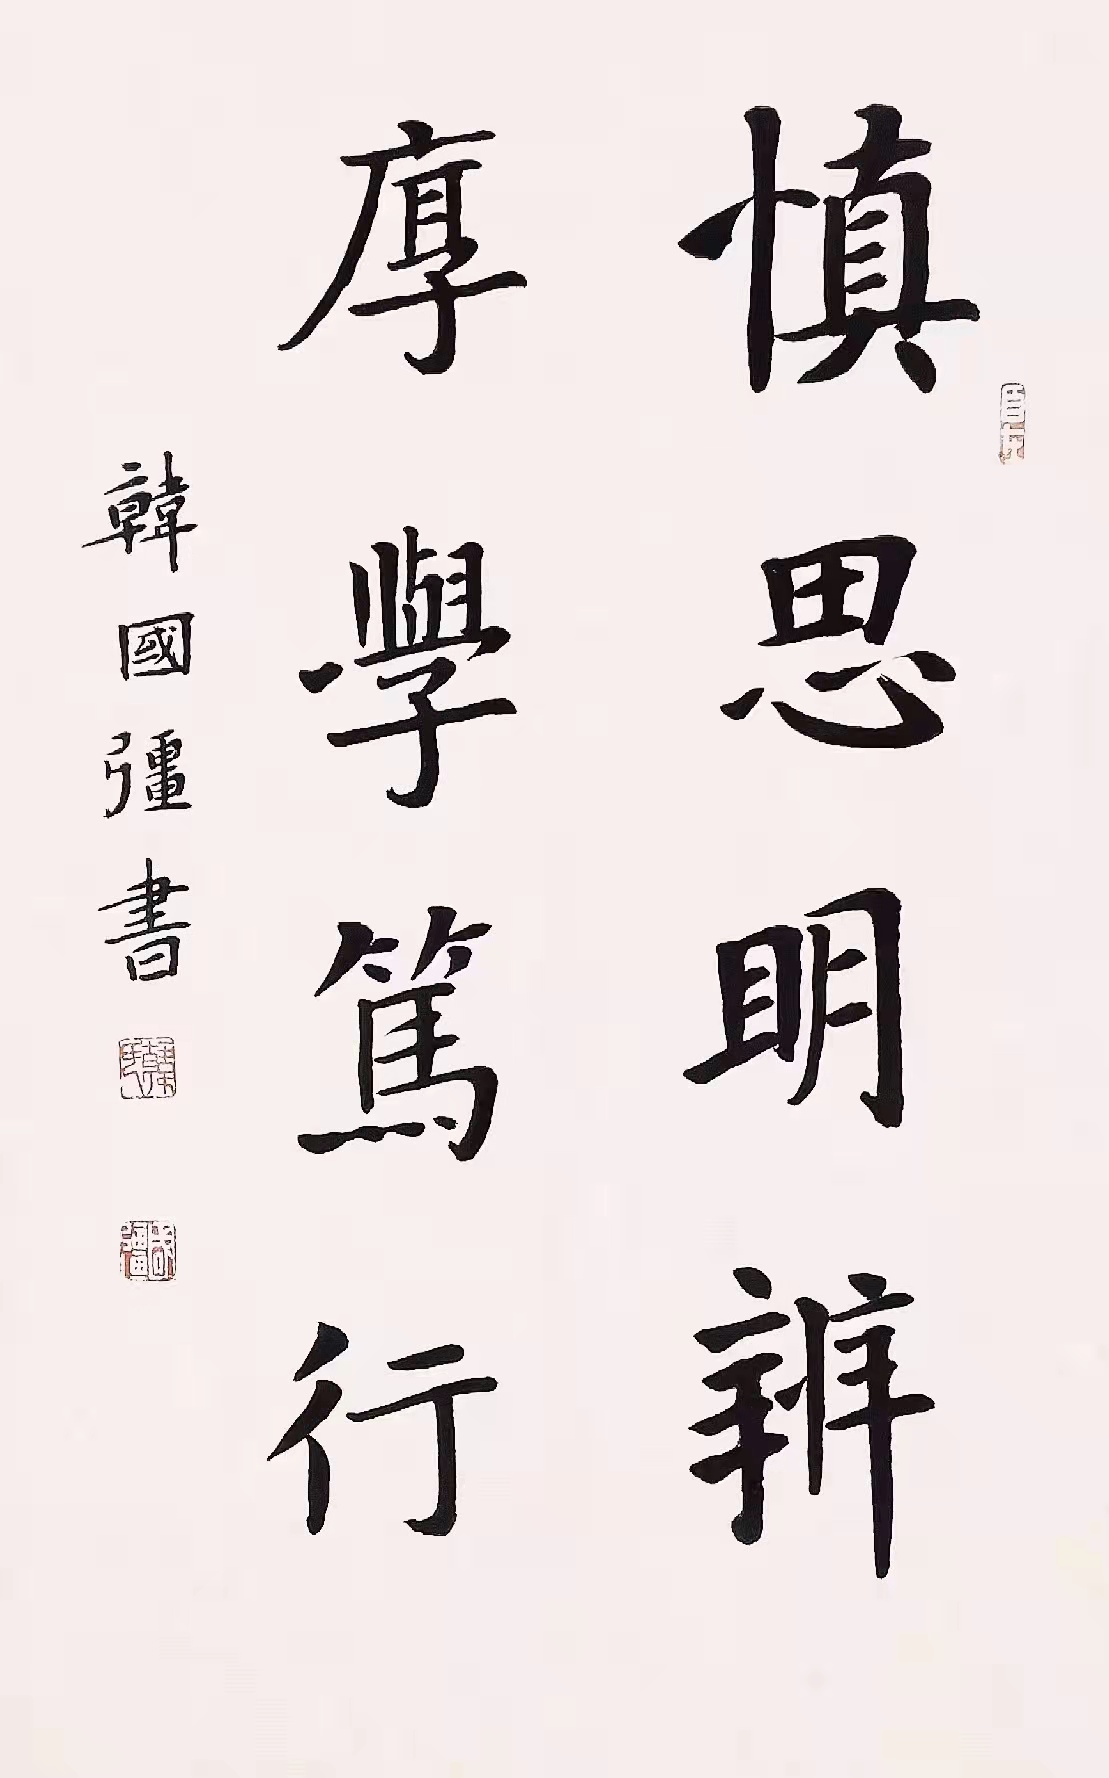 慎思明辨
厚學篤行
韓國彊書